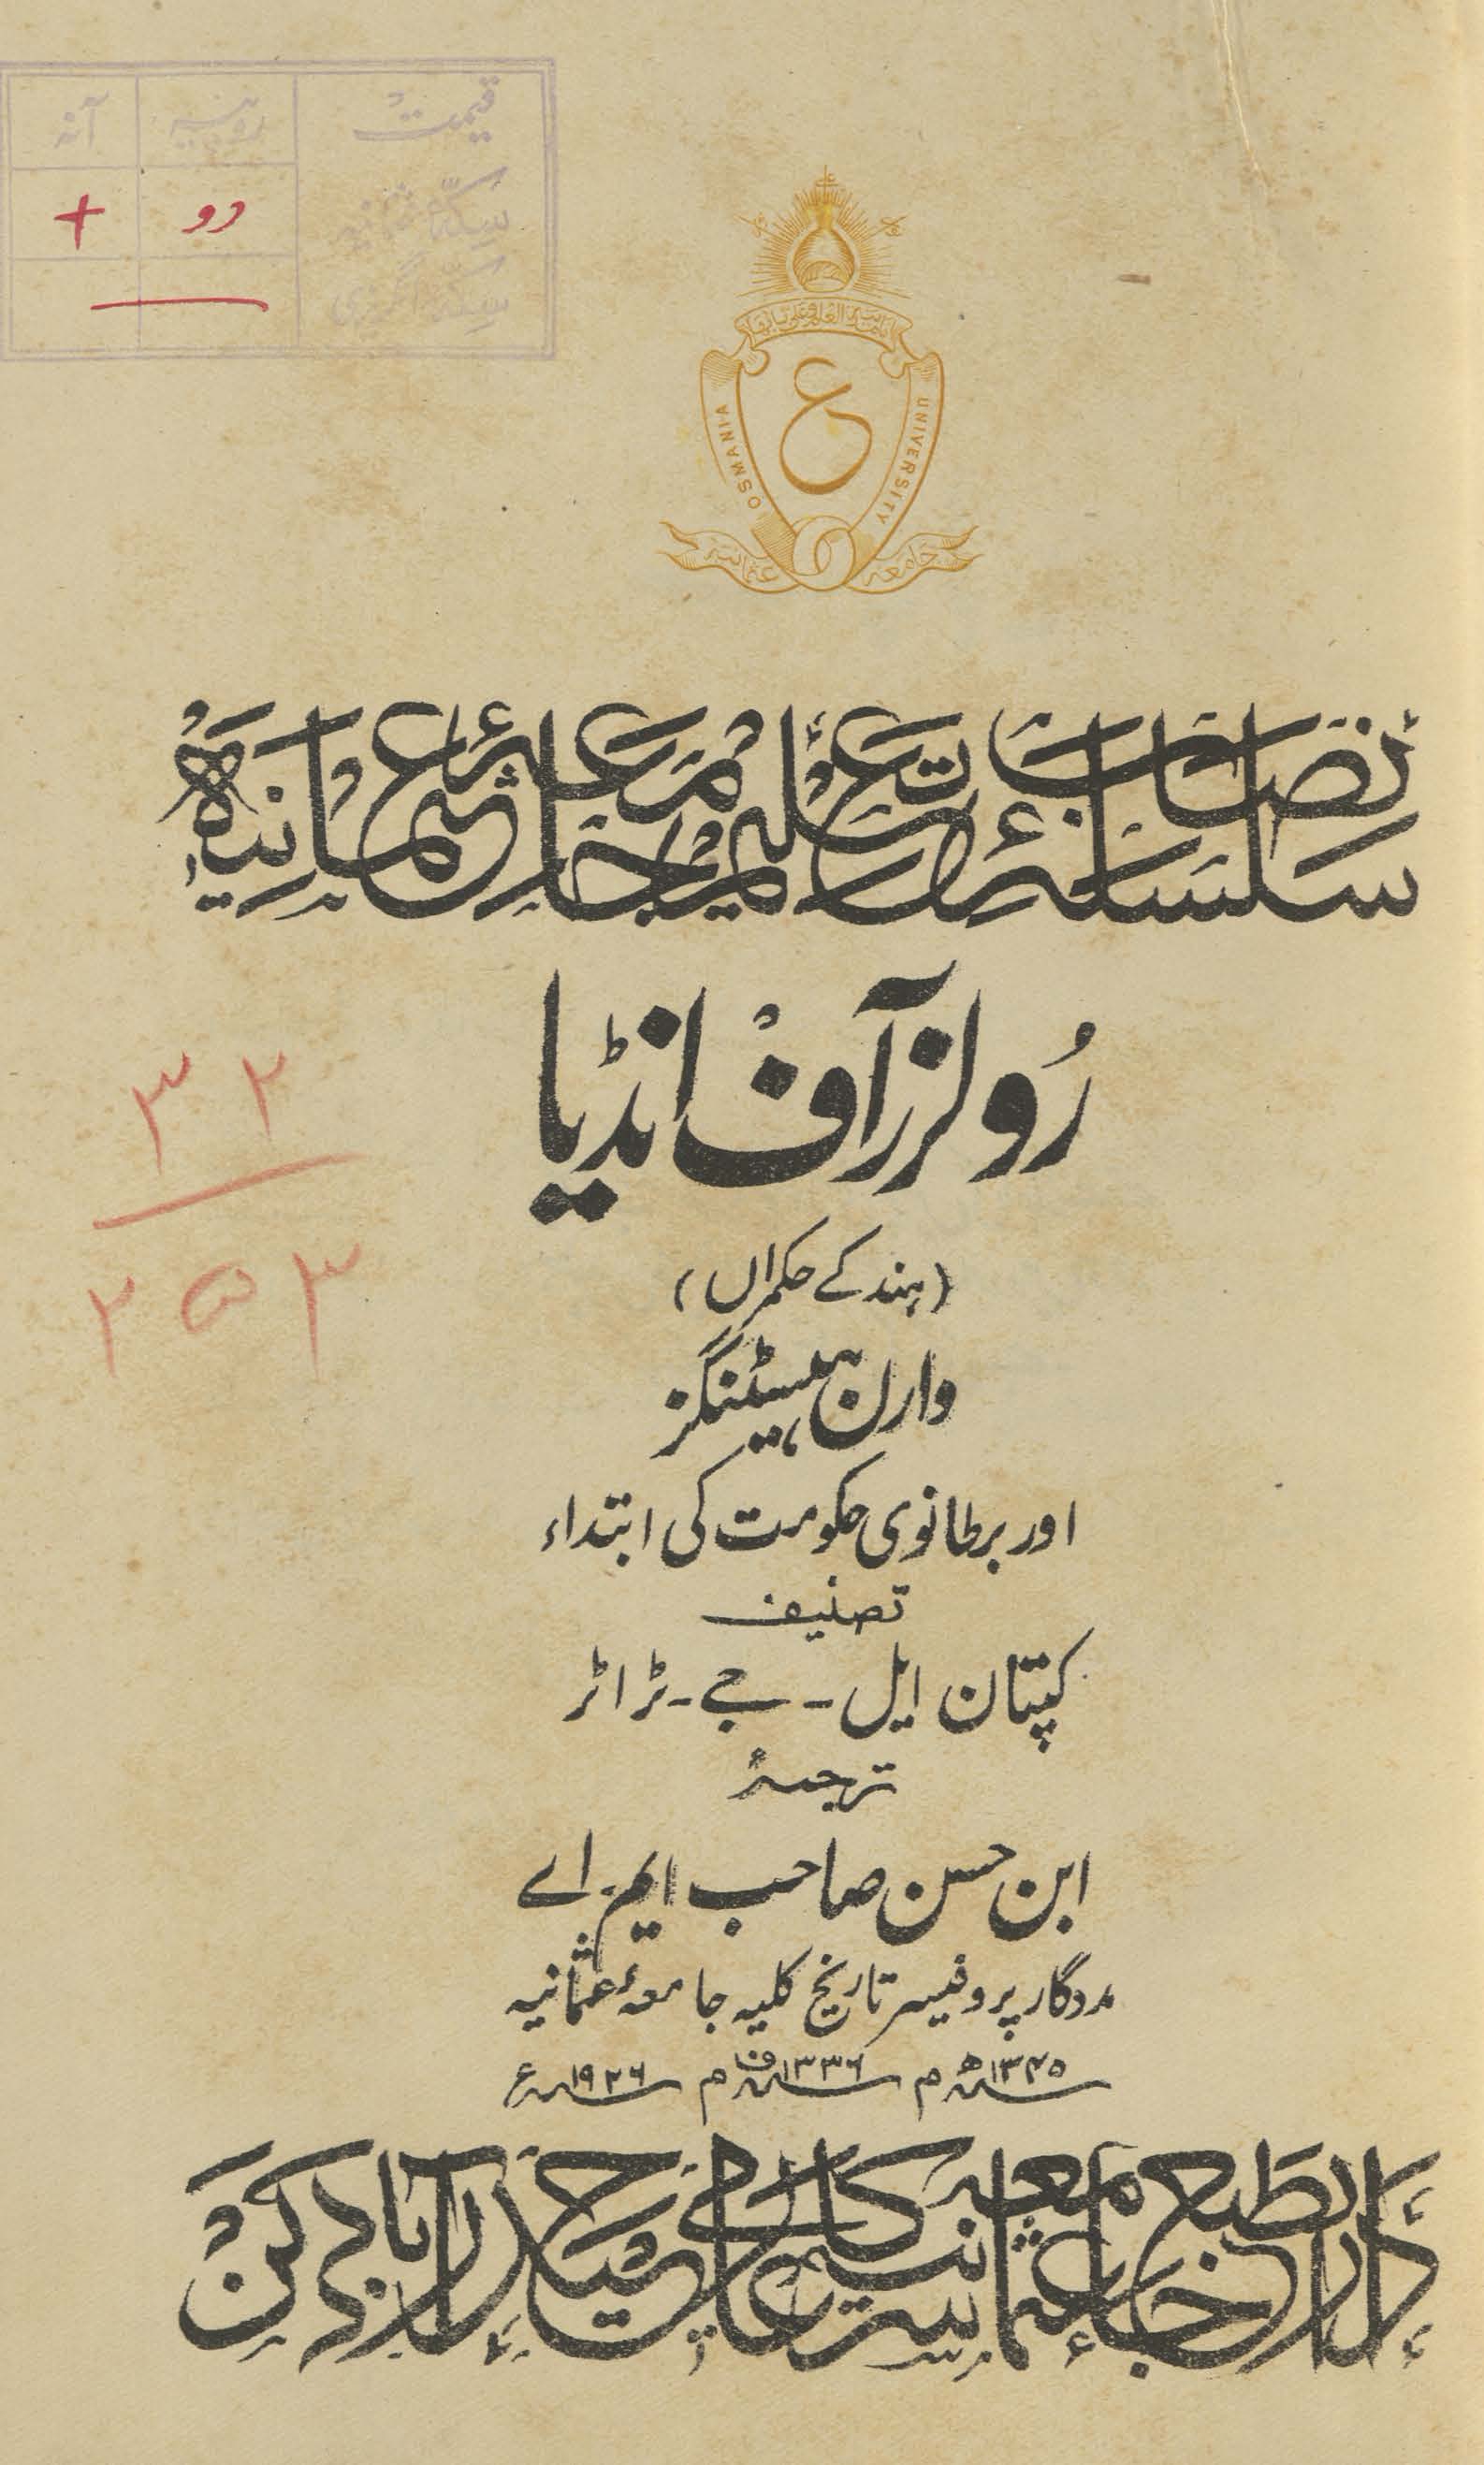 قیمت روپیہ آنہ
سکہ عثمانیہ دو +
سکہ انگریزی
OSMANIA UNIVERSITY
ع
جامعہ عثمانیہ
سلسلۂ نصاب تعلیم جامعۂ عثمانیہ
رُولرز آف انڈیا
(ہند کے حکمراں)
وارن ہیسٹنگز
اور برطانوی حکومت کی ابتداء
تصنیف
کپتان ایل۔ جے۔ ٹراٹر
ترجمۂ
ابن حسن صاحب ایم۔ اے
مددگار پروفیسر تاریخ کلیہ جامعۂ عثمانیہ
۱۳۴۵ھ م ۱۳۳۶ف م ۱۹۲۶ء
دارالطبع جامعہ عثمانیہ سرکار عالی حیدرآباد دکن
۳۲
۲۵۳